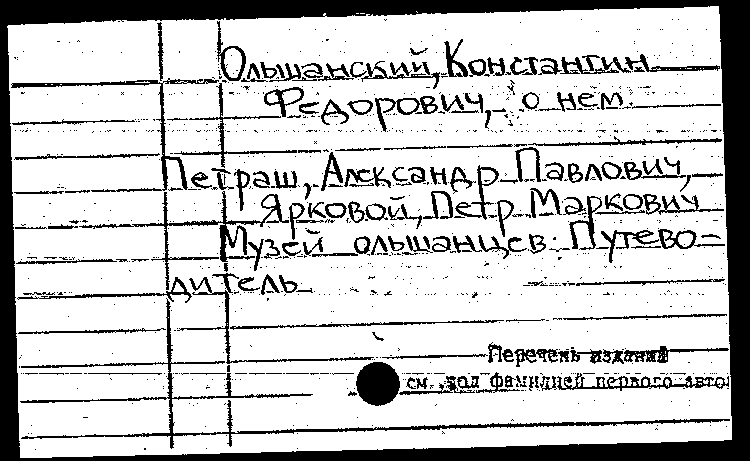 Ольшанский, Константин
Федорович, о нем.
Петраш, Александр Павлович,
Ярковой, Петр Маркович
Музей ольшанцев: Путево-
дитель
Перечень изданий
см. под фамилией первого авто